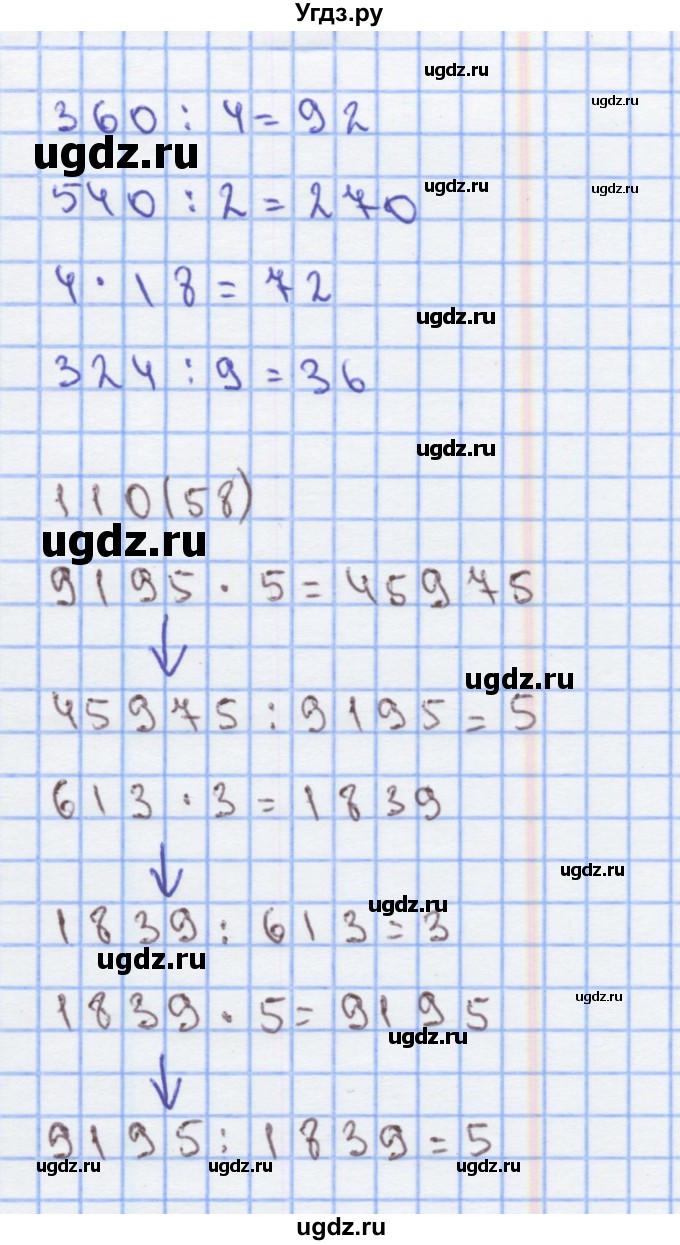 Угдз.ру
ugdz.ru
ugdz.ru
360 : 4 = 92
ugdz.ru
ugdz.ru
ugdz.ru
540 : 2 = 270
4 · 18 = 72
ugdz.ru
324 : 9 = 36
ugdz.ru
110(58)
ugdz.ru
9195 · 5 = 45975
↓
ugdz.ru
45975 : 9195 = 5
613 · 3 = 1839
↓
ugdz.ru
ugdz.ru
1839 : 613 = 3
ugdz.ru
ugdz.ru
1839 · 5 = 9195
ugdz.ru
↓
9195 : 1839 = 5
ugdz.ru ugdz.ru ugdz.ru
ugdz.ru